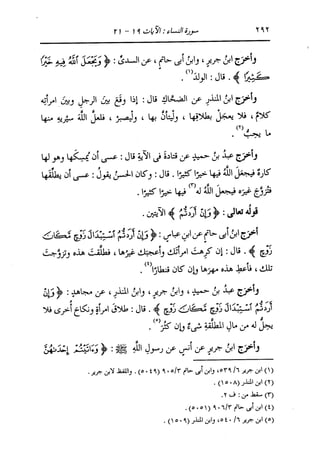 ٢٩٢ سورة النساء : الآيات ١٩ - ٢١
وأخرج ابنُ جريرٍ ، وابنُ أبى حاتمٍ ، عن السدىِّ : ﴿ وَيَجْعَلَ اللَّهُ فِيهِ خَيْرًا
كَثِيرًا ﴾ . قال : الولدُ(١) .
وأخرج ابنُ المنذرِ عن الضحاكِ قال : إذا وقَع بينَ الرجلِ وبينَ امرأتِه
كلامٌ ، فلا يعجَلْ بطلاقِها ، وليتأنَّ بها ، وليصبرْ ، فلعلَّ اللَّهَ سيُريه منها
ما يحبُّ(٢) .
وأخرج عبدُ بنُ حميدٍ عن قتادةَ فى الآيةِ قال : عسى أن يُمسِكَها وهو لها
كارهٌ فيجعلَ اللَّهُ فيها خيرًا كثيرًا . قال : وكان الحسنُ يقولُ : عسى أن يطلِّقَها
فتزوَّج غيرَه فيجعلَ اللَّهُ له(٣) فيها خيرًا كثيرًا .
قولُه تعالى : ﴿ وَإِنْ أَرَدتُّمُ ﴾ الآيتين .
أخرَج ابنُ أبى حاتمٍ عن ابنِ عباسٍ : ﴿ وَإِنْ أَرَدتُّمُ اسْتِبْدَالَ زَوْجٍ مَّكَانَ
زَوْجٍ ﴾ . قال : إن كرِهتَ امرأتَك وأعجَبك غيرُها ، فطلَّقتَ هذه وتزوَّجتَ
تلك ، فأعطِ هذه مهرَها وإن كان قنطارًا(٤) .
وأخرج عبدُ بنُ حميدٍ ، وابنُ جريرٍ ، وابنُ المنذرِ ، عن مجاهدٍ : ﴿ وَإِنْ
أَرَدتُّمُ اسْتِبْدَالَ زَوْجٍ مَّكَانَ زَوْجٍ ﴾ . قال : طلاقَ امرأةٍ ونكاحَ أُخرى فلا
يحِلُّ له من مالِ المطلَّقةِ شىءٌ وإن كثُر(٥) .
وأخرج ابنُ جريرٍ عن أنسٍ عن رسولِ اللَّهِ ﷺ : ﴿ وَءَاتَيْتُمْ إِحْدَىٰهُنَّ
(١) ابن جرير ٥٣٩/٦ ، وابن أبى حاتم ٩٠٥/٣ (٥٠٤٩) . واللفظ لابن جرير .
(٢) ابن المنذر (١٥٠٨) .
(٣) سقط من : ف ٢ .
(٤) ابن أبى حاتم ٩٠٦/٣ (٥٠٥١) .
(٥) ابن جرير ٥٤٠/٦ ، وابن المنذر (١٥٠٩) .